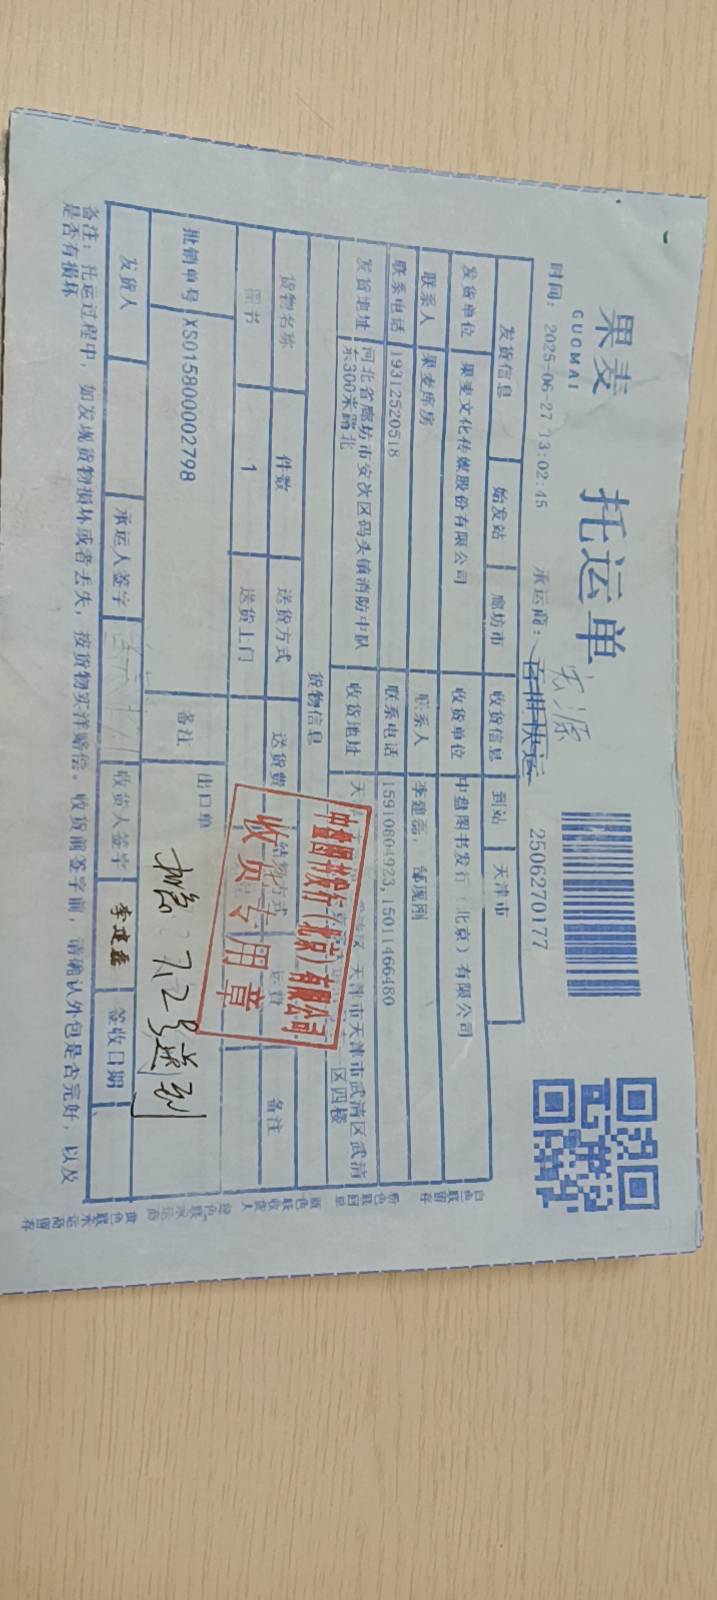 果麦
GUOMAI
托运单
2506270177
时间: 2025-06-27 13:02:45 承运商: 百世快运
宏源
发货信息 始发站 廊坊市 收货信息 到站 天津市
发货单位 果麦文化传媒股份有限公司 收货单位 中盘图书发行（北京）有限公司
联系人 果麦库房 联系人 李建磊，邹现刚
联系电话 19312520518 联系电话 15910804923,15011466480
发货地址 河北省廊坊市安次区码头镇消防中队东300米路北 收货地址 天津市天津市武清区武清区四楼
货物信息
货物名称 件数 送货方式 送货费 结算方式 运费 备注
图书 1 送货上门
中盘图书发行（北京）有限公司
收货专用章
批销单号 XS015800002798 备注 出口单
7.2号送到
发货人 承运人签字 收货人签字 李建磊 签收日期
备注: 托运过程中，如发现货物损坏或者丢失，按货物实洋赔偿。收货前签字前，请确认外包是否完好，以及是否有损坏
白色联留存 粉色联回单 蓝色联收货人 绿色联承运商 黄色联承运商留存